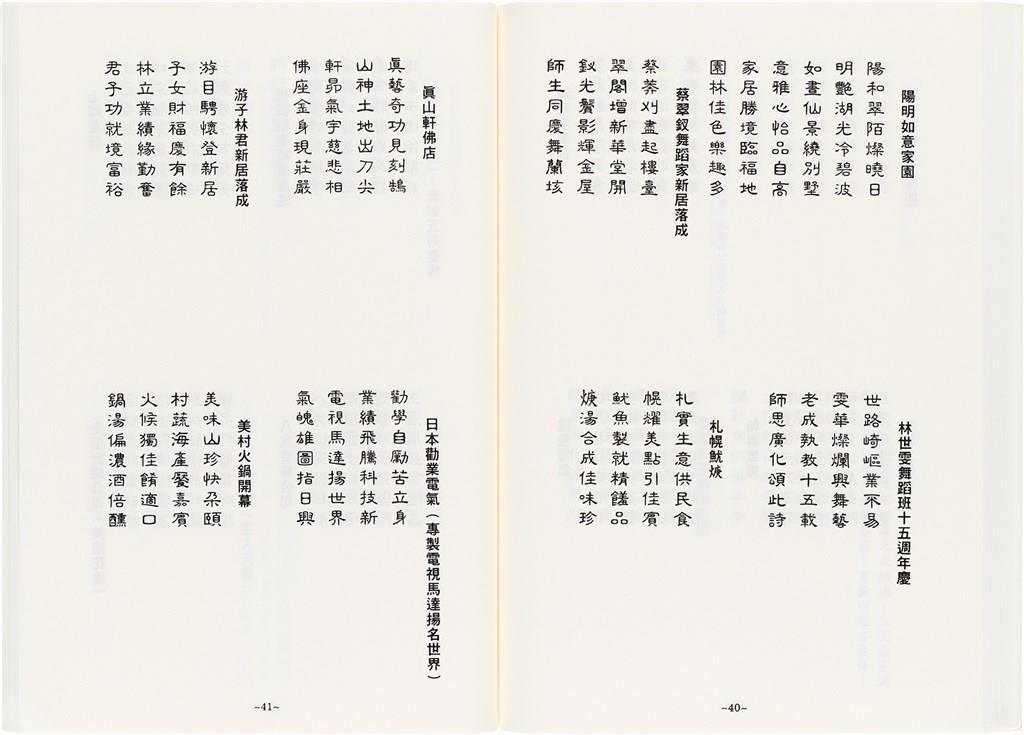 陽明如意家園
陽和翠陌燦曉日
明艷湖光冷碧波
如畫仙景繞別墅
意雅心怡品自高
家居勝境臨福地
園林佳色樂趣多
蔡翠釵舞蹈家新居落成
蔡莽刈盡起樓臺
翠閣增新華堂開
釵光鬢影輝金屋
師生同慶舞蘭垓
林世雯舞蹈班十五週年慶
世路崎嶇業不易
雯華燦爛興舞藝
老成執教十五載
師思廣化頌此詩
札幌魷焿
札實生意供民食
幌耀美點引佳賓
魷魚製就精饈品
焿湯合成佳味珍
~40~
眞山軒佛店
眞藝奇功見刻鵠
山神土地出刀尖
軒昂氣宇慈悲相
佛座金身現莊嚴
游子林君新居落成
游目騁懷登新居
子女財福慶有餘
林立業績緣勤奮
君子功就境富裕
日本勸業電氣（專製電視馬達揚名世界）
勸學自勵苦立身
業績飛騰科技新
電視馬達揚世界
氣魄雄圖指日興
美村火鍋開幕
美味山珍快朵頤
村蔬海產饜嘉賓
火候獨佳餚適口
鍋湯偏濃酒倍醺
~41~